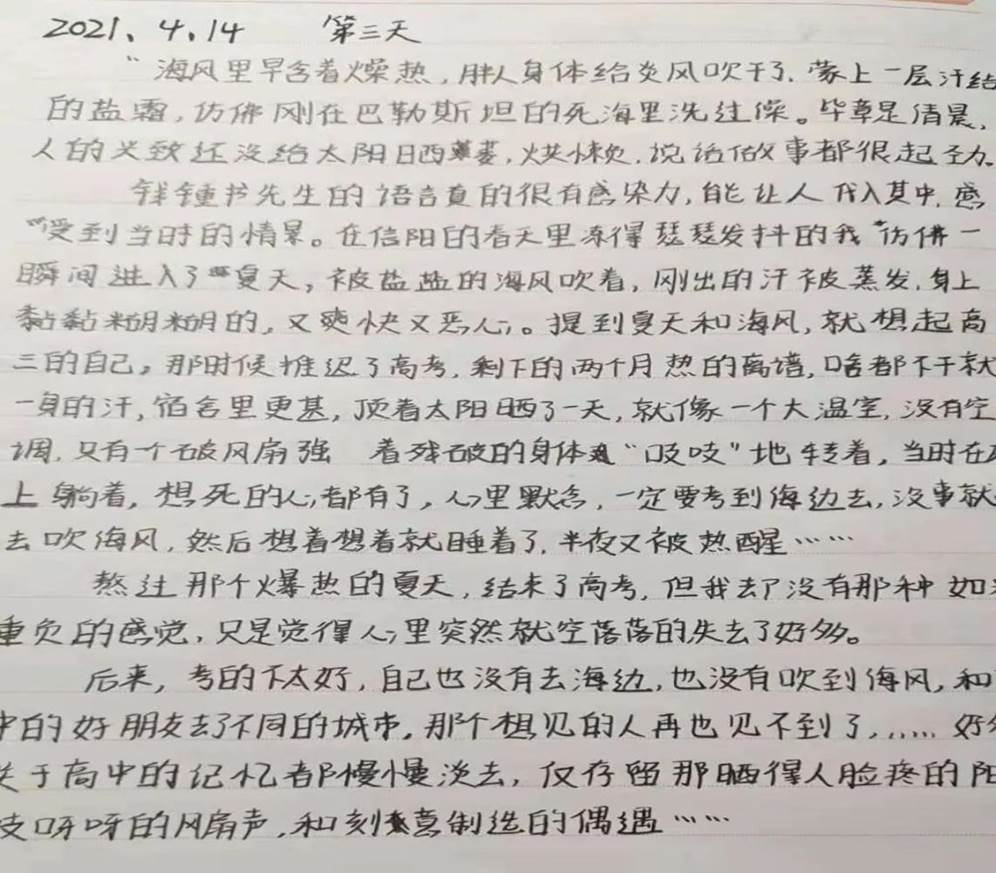 2021、4.14 第三天
“海风里早含着燥热,胖人身体给炎风吹干了.蒙上一层汗结
的盐霜,仿佛刚在巴勒斯坦的死海里洗过澡。毕竟是清晨,
人的兴致还没给太阳晒萎,烘懒,说话做事都很起劲。
钱锺书先生的语言真的很有感染力,能让人代入其中.感
受到当时的情景。在信阳的春天里冻得瑟瑟发抖的我仿佛一
瞬间进入了夏天,被盐盐的海风吹着,刚出的汗被蒸发.身上
黏黏糊糊的,又爽快又恶心。提到夏天和海风,就想起高
三的自己,那时候推迟了高考.剩下的两个月热的离谱,啥都不干就
一身的汗,宿舍里更甚,顶着太阳晒了一天,就像一个大温室,没有空
调.只有一个破风扇强 着残破的身体“吱吱”地转着,当时在
上躺着,想死的心都有了,心里默念,一定要考到海边去,没事就
去吹海风,然后想着想着就睡着了.半夜又被热醒……
熬过那个燥热的夏天,结束了高考.但我却没有那种如
重负的感觉,只是觉得心里突然就空落落的失去了好多。
后来,考的不太好,自己也没有去海边,也没有吹到海风,和
中的好朋友去了不同的城市.那个想见的人再也见不到了,..... 好
关于高中的记忆都慢慢淡去,仅存留那晒得人脸疼的阳
吱呀呀的风扇声,和刻意制造的偶遇……